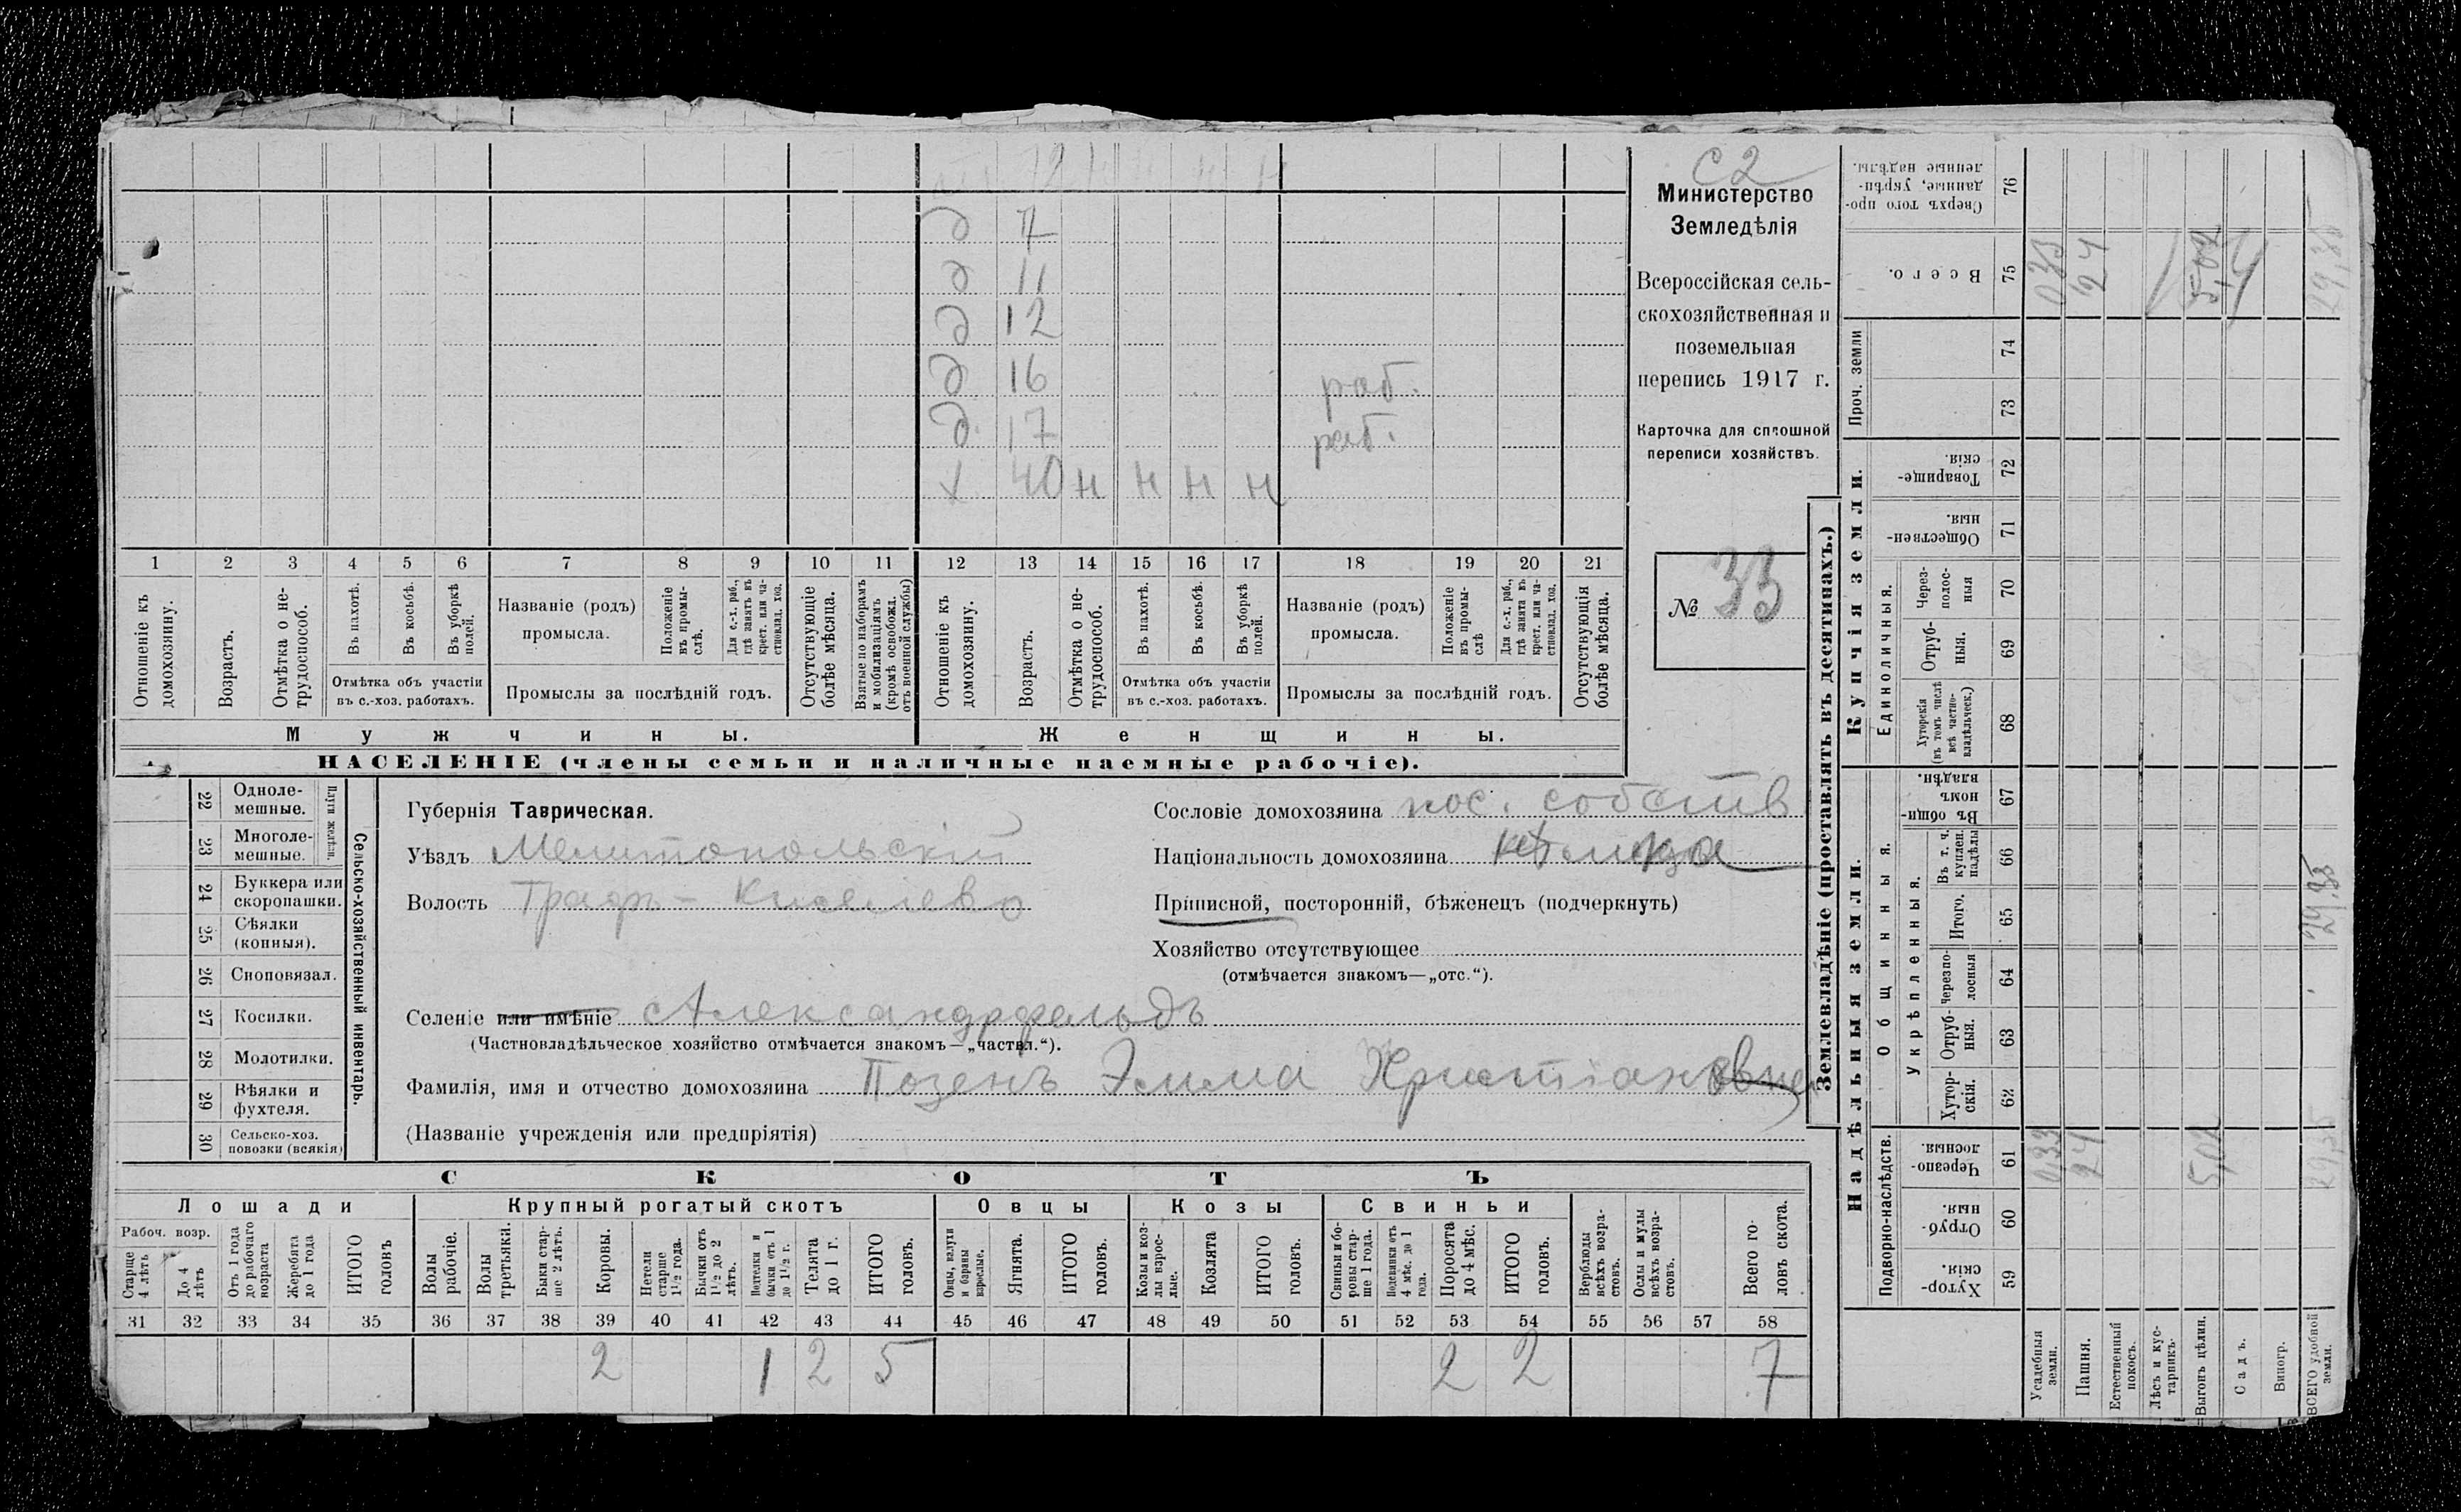 С2
Министерство
Земледѣлія
Всероссійская сель-
скохозяйственная и
поземельная
перепись 1917 г.
Карточка для сплошной
переписи хозяйствъ.
№ 33
д 7
д 11
д 12
д 16 раб.
д 17 раб.
х 40 н н н н
1 2 3 4 5 6 7 8 9 10 11 12 13 14 15 16 17 18 19 20 21
Отношеніе къ домохозяину.
Возрастъ.
Отмѣтка о не-трудоспособ.
Въ пахотѣ.
Въ косьбѣ.
Въ уборкѣ полей.
Отмѣтка объ участіи въ с.-хоз. работахъ.
Названіе (родъ) промысла.
Положеніе въ промы-слѣ.
Для с.-х. раб., гдѣ занятъ въ крест. или ча-стновлад. хоз.
Промыслы за послѣдній годъ.
Отсутствующіе болѣе мѣсяца.
Взятые по наборамъ и мобилизаціямъ (кромѣ освобожд. отъ военной службы)
Отношеніе къ домохозяину.
Возрастъ.
Отмѣтка о не-трудоспособ.
Въ пахотѣ.
Въ косьбѣ.
Въ уборкѣ полей.
Отмѣтка объ участіи въ с.-хоз. работахъ.
Названіе (родъ) промысла.
Положеніе въ промы-слѣ
Для с.-х. раб., гдѣ занята въ крест. или ча-стновлад. хоз.
Промыслы за послѣдній годъ.
Отсутствующія болѣе мѣсяца.
Мужчины. Женщины.
НАСЕЛЕНІЕ (члены семьи и наличные наемные рабочіе).
22 Одноле-мешные.
23 Многоле-мешные.
Плуги желѣзн.
24 Буккера или скоропашки.
25 Сѣялки (конныя).
26 Сноповязал.
27 Косилки.
28 Молотилки.
29 Вѣялки и фухтеля.
30 Сельско-хоз. повозки (всякія)
Сельско-хозяйственный инвентарь.
Губернія Таврическая.
Уѣздъ Мелитопольскій
Волость Графъ-Киселево
Сословіе домохозяина пос. собств
Національность домохозяина
Приписной, посторонній, бѣженецъ (подчеркнуть)
Хозяйство отсутствующее
(отмѣчается знакомъ—„отс.“).
Селеніе или имѣніе Александрфельдъ
(Частновладѣльческое хозяйство отмѣчается знакомъ—„частвл.“).
Фамилія, имя и отчество домохозяина Позенъ Эмма Христіановна
(Названіе учрежденія или предпріятія)
СКОТЪ
Лошади Крупный рогатый скотъ Овцы Козы Свиньи
Рабоч. возр.
Старше 4 лѣтъ
До 4 лѣтъ
Отъ 1 года до рабочаго возраста
Жеребята до 1 года
ИТОГО головъ
Волы рабочіе.
Волы третьяки.
Быки стар-ше 2 лѣтъ.
Коровы.
Нетели старше 1½ года.
Бычки отъ 1½ до 2 лѣтъ.
Подтелки и бычки отъ 1 до 1½ г.
Телята до 1 г.
ИТОГО головъ.
Овцы, валухи и бараны взрослые.
Ягнята.
ИТОГО головъ.
Козы и коз-лы взрос-лые.
Козлята
ИТОГО головъ.
Свиньи и бо-ровы стар-ше 1 года.
Подсвинки отъ 4 мѣс. до 1 года.
Поросята до 4 мѣс.
ИТОГО головъ.
Верблюды всѣхъ возра-стовъ.
Ослы и мулы всѣхъ возра-стовъ.
Всего го-ловъ скота.
31 32 33 34 35 36 37 38 39 40 41 42 43 44 45 46 47 48 49 50 51 52 53 54 55 56 57 58
2 1 2 5 2 2 7
Землевладѣніе (проставлять въ десятинахъ.)
Надѣльныя земли. Купчія земли. Проч. земли
Подворно-наслѣдств. Общинныя. Укрѣпленныя. Единоличныя.
Сверхъ того про-данные, укрѣп-ленные надѣлы. 76
Всего. 75
74
73
Товарище-скія. 72
Обществен-ныя. 71
Через-полос-ныя 70
Отруб-ныя. 69
Хуторскія (въ томъ числѣ всѣ частно-владѣльческ.) 68
Въ общин-номъ владѣн. 67
Въ т. ч. куплен. надѣлы 66
Итого. 65
Черезпо-лосныя 64
Отруб-ныя. 63
Хутор-скія. 62
Черезпо-лосныя 61
Отруб-ныя. 60
Хутор-скія. 59
Усадебныя земли. 0,33 033
Пашня. 24 24
Естественный покосъ.
Лѣсъ и кус-тарникъ.
Выгонъ цѣлин. 5,02
Садъ.
Виногр.
ВСЕГО удобной земли. 29,35 29,35 29,35